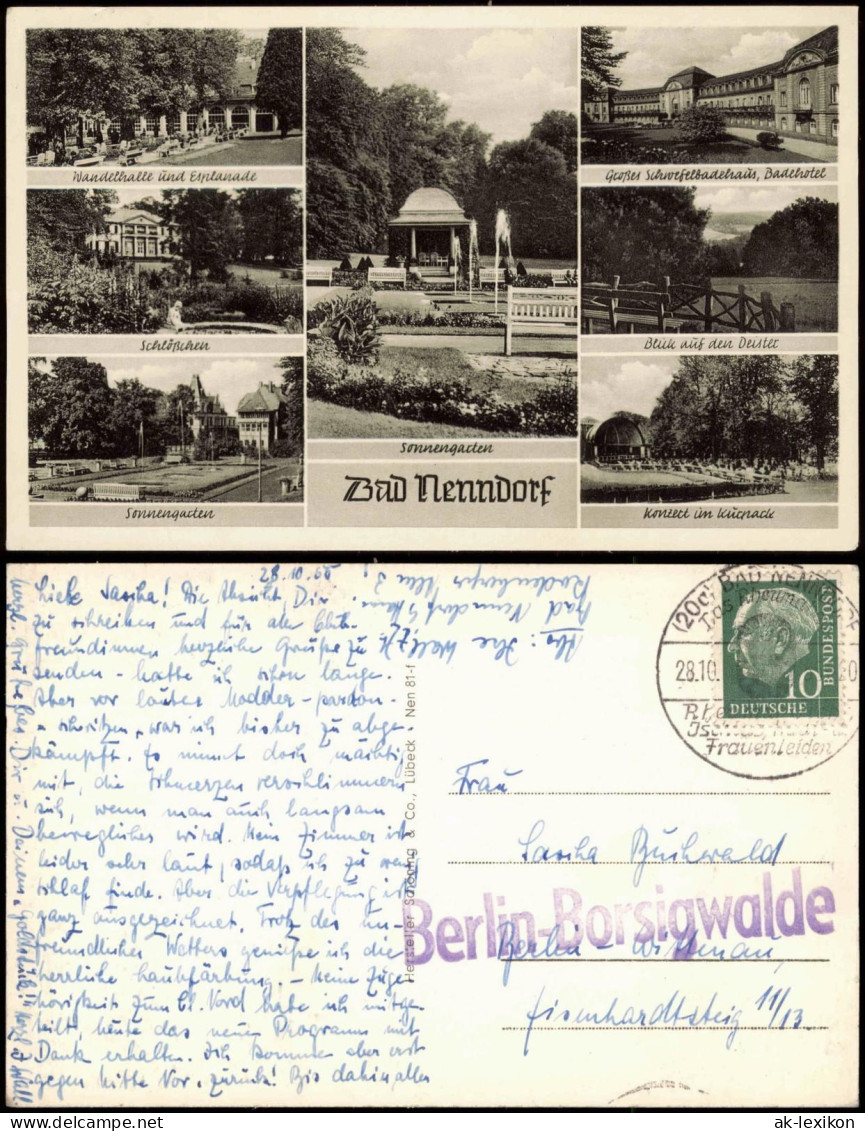 Wandelhalle und Esplanade
Großes Schwefelbadehaus, Badehotel
Schlößchen
Blick auf den Deister
Sonnengarten
Sonnengarten
Konzert im Kurpark
Bad Nenndorf
28.10.
Liebe Sascha! Die Absicht, Dir
zu schreiben und für alle Club-
freundinnen herzliche Grüße zu
senden - hatte ich schon lange.
Aber vor lauter Modder - pardon -
schwitzen, war ich bisher zu abge-
kämpft. Es nimmt doch mächtig
mit, die Schmerzen verschlimmern
sich, wenn man auch langsam
beweglicher wird. Mein Zimmer ist
leider sehr laut, sodaß ich zu wenig
Schlaf finde. Aber die Verpflegung ist
ganz ausgezeichnet. Trotz des un-
freundlichen Wetters genieße ich die
herrliche Laubfärbung. - Meine Zuge-
hörigkeit zum Cl. Nord habe ich mitge-
teilt, heute das neue Programm mit
Dank erhalten. Ich komme aber erst
gegen Mitte Nov. zurück! Bis dahin alles
herzl. Grüße bes. Dir u. Deinem "Goldstück"!
Bad Nenndorf
Rodenberger
Hersteller Schöning & Co., Lübeck Nen 81-f
(20c) BAD NENNDORF
28.10.
Frauenleiden
10
DEUTSCHE
BUNDESPOST
Frau
Sascha Buchwald
Berlin-Borsigwalde
Berlin - Wittenau
Eisenhardtsteig 11/13
ak-lexikon